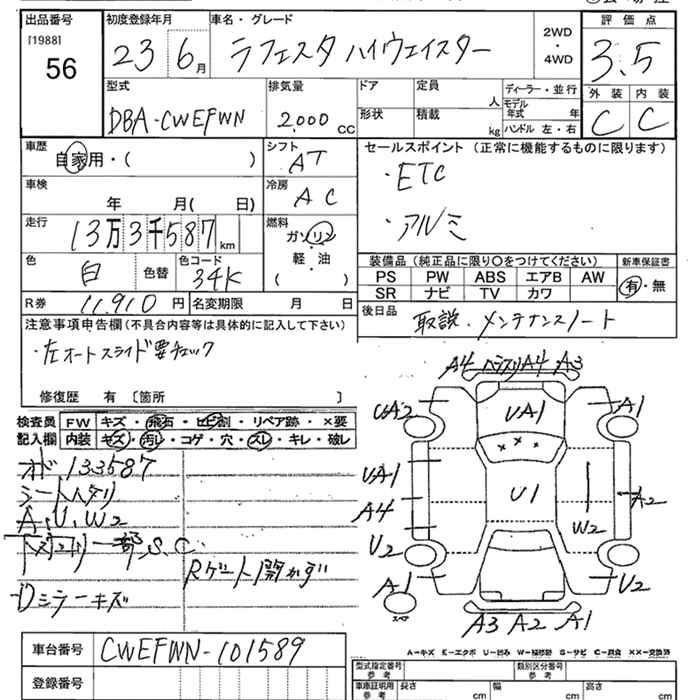 出品番号
[1988]
56
初度登録年月
23 6月
車名・グレード
ラフェスタ ハイウェイスター
2WD
・
4WD
評価点
3.5
外装 内装
C C
型式
DBA-CWEFWN
排気量
2,000 CC
ドア
形状
定員
人
積載
kg
ディーラー・並行
モデル年式 年
ハンドル 左・右
車歴
自家用・( )
シフト
AT
車検
年 月( 日)
冷房
AC
走行
13万3千587km
燃料
ガソリン
・
軽・油
( )
色
白
色替
色コード
34K
R券
11.910円
名変期限 月 日
セールスポイント(正常に機能するものに限ります)
・ETC
・アルミ
装備品(純正品に限り○をつけてください)
PS PW ABS エアB AW
SR ナビ TV カワ
新車保証書
有・無
後日品
取説・メンテナンスノート
注意事項申告欄(不具合内容等は具体的に記入して下さい)
・左オートスライド要チェック
修復歴 有 〔箇所 〕
検査員
記入欄
FW キズ・飛石・ヒビ割・リペア跡・×要
内装 キズ・汚レ・コゲ・穴・スレ・キレ・破レ
オド 133587
シートヘタリ
A,U,W2
下回り一部S,C
Rゲート開かず
Dミラーキズ
A4 ヘラスリA4 A3
UA2 UA1 A1
× × ×
UA1
A4 U1
A2
W2
U2
A1 U2
スペア
A3 A2 A1
A-キズ E-エクボ U-凹み W-補修跡 S-サビ C-腐食 XX-交換済
車台番号
CWEFWN-101589
登録番号
型式指定番号
参考
類別区分番号
参考
車車証明用
参考
長さ cm 幅 cm 高さ cm